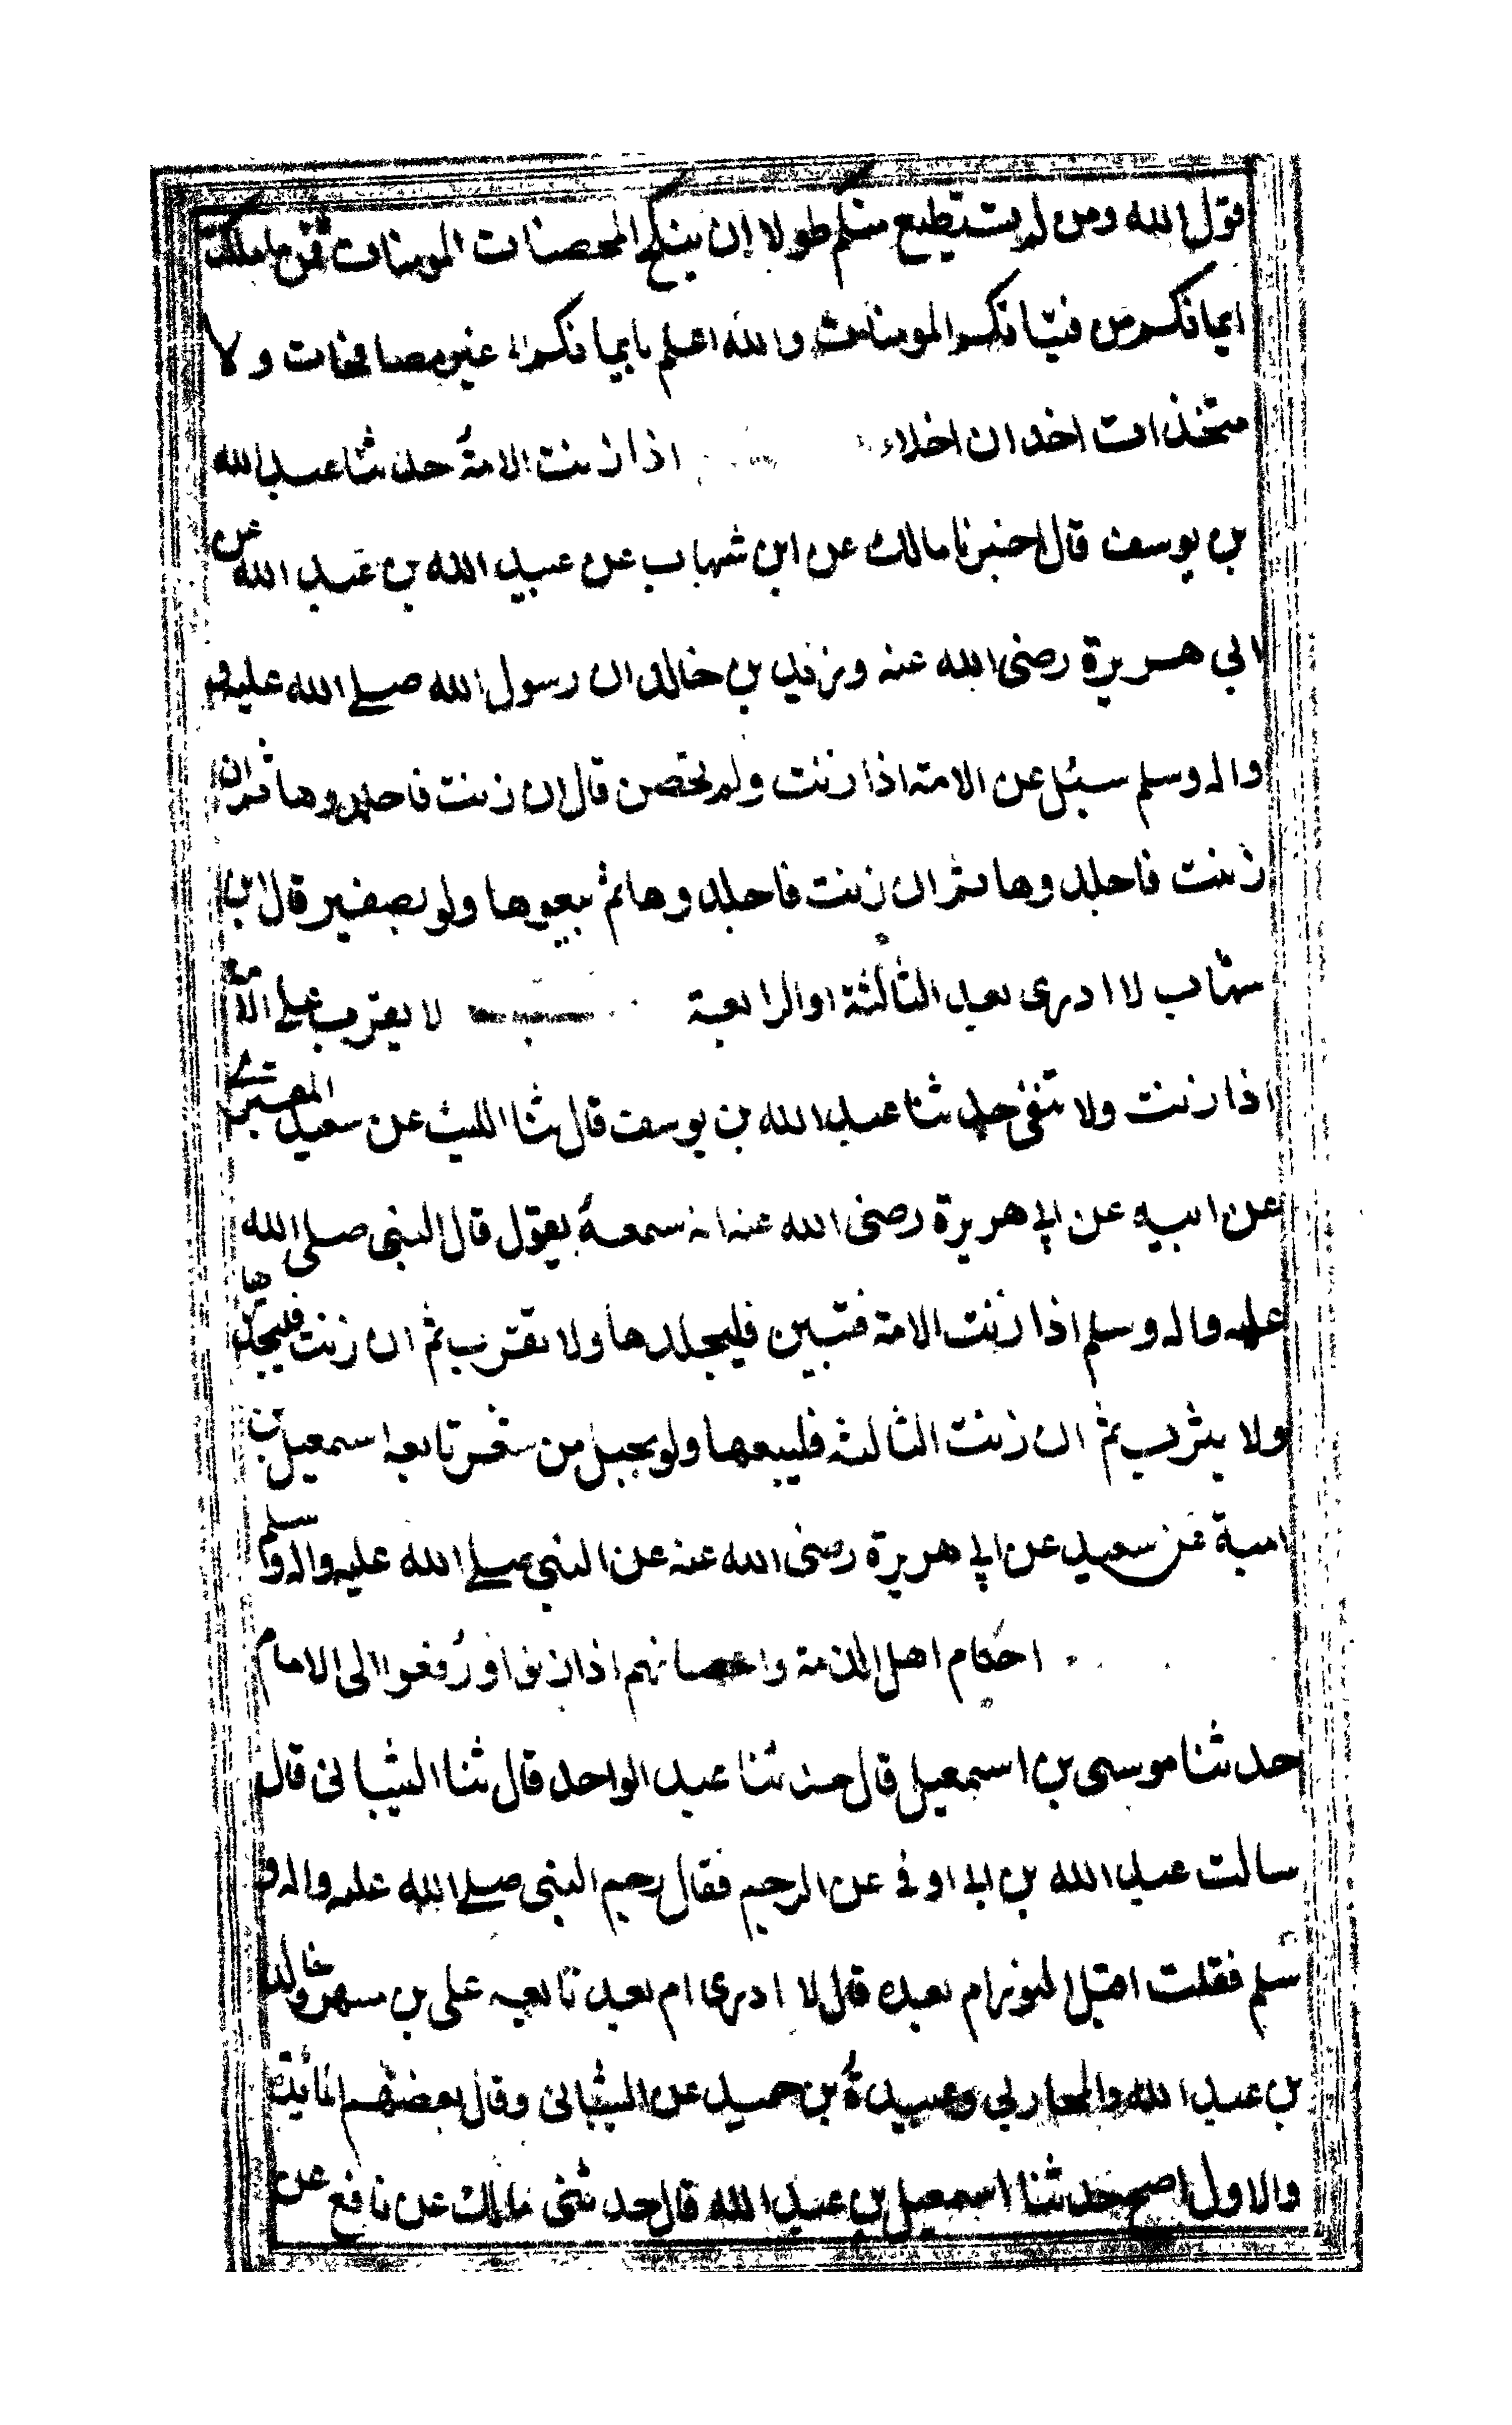 قول الله ومن لم يستطيع منكم طولا ان ينكح المحصنات المومنات فمن ما ملكت
ايمانكم من فتياتكم المومنات والله اعلم بايمانكم الا غير مصافحات ولا
متخذات اخدان اخلاء اذا زنت الامة حدثنا عبد الله
بن يوسف قال اخبرنا مالك عن ابن شهاب عن عبيد الله بن عبد الله عن
ابي هريرة رضى الله عنه وزيد بن خالد ان رسول الله صلى الله عليه و
واله وسلم سئل عن الامة اذا زنت ولم تحصن قال ان زنت فاجلدوها ثم ان
زنت فاجلدوها ثم ان زنت فاجلدوها ثم بيعوها ولو بضفير قال ابن
شهاب لا ادرى بعد الثالثة او الرابعة لا يقرب على الامة
اذا زنت ولا تنفى حدثنا عبد الله بن يوسف قال ثنا الليث عن سعيد المقبرى
عن ابيه عن ابى هريرة رضى الله عنه انه سمعه يقول قال النبى صلى الله
عليه واله وسلم اذا زنت الامة فتبين فليجلدها ولا يقرب ثم ان زنت فليجلدها
ولا يثرب ثم ان زنت الثالثه فليبعها ولو بحبل من شعر تابعه اسمعيل بن
امية عن سعيد عن ابى هريرة رضى الله عنه عن النبى صلى الله عليه واله وسلم
احكام اهل الذمة واحصانهم اذا زنوا و رُفعوا الى الامام
حدثنا موسى بن اسمعيل قال حدثنا عبد الواحد قال ثنا الشيبانى قال
سالت عبد الله بن ابى اوفى عن الرجم فقال رجم النبى صلى الله عليه واله و
سلم فقلت اقبل النور ام بعده قال لا ادرى ام بعد تابعه على بن مسهر وخالد
بن عبد الله والمحاربى وعبيدة بن حميد عن الشيبانى وقال بعضهم المائدة
والاول اصح حدثنا اسمعيل بن عبد الله قال حدثنى مالك عن نافع عن